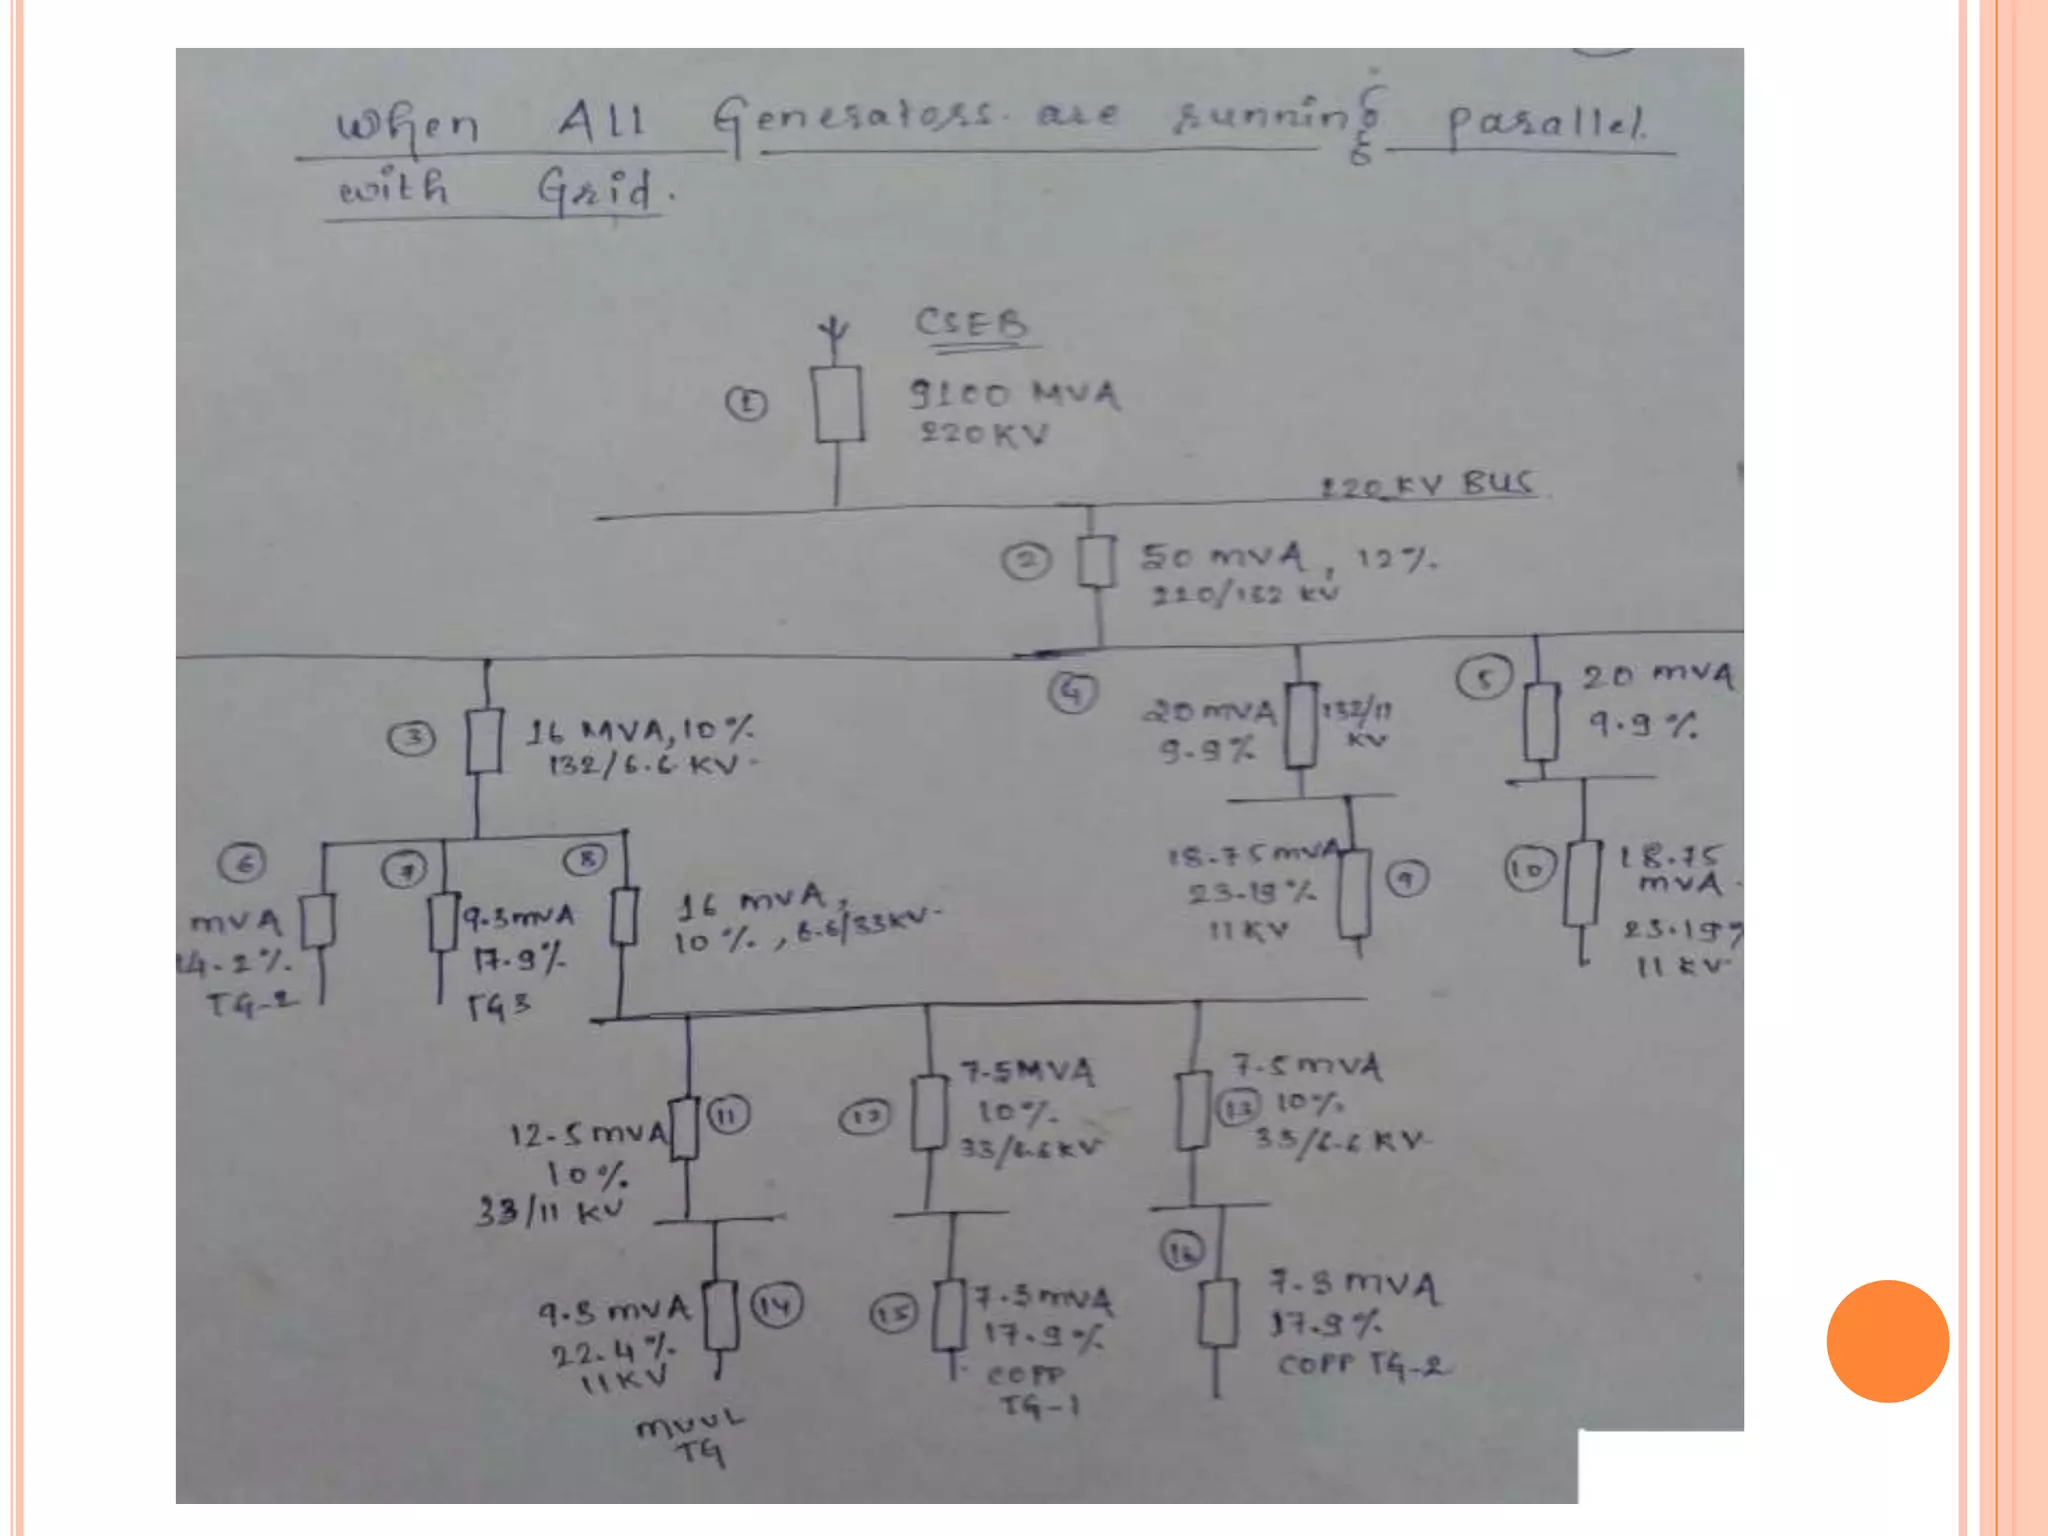 When All Generators are running parallel
with Grid.
CSEB
1
9100 MVA
220KV
220 KV BUS
2
50 mVA, 12%.
220/132 KV
3
16 MVA, 10%
132/6.6 KV
4
20 mVA
9.9%
132/11
KV
5
20 mVA
9.9%
6
mVA
14.2%.
TG-2
7
9.3mVA
17.9%
TG3
8
16 mVA,
10%., 6.6/33KV
18.75 mVA
23.19%
11KV
9
10
18.75
mVA
23.19%
11 KV
12.5 mVA
10%
33/11 KV
11
12
7.5MVA
10%
33/6.6KV
7.5 mVA
13
10%
33/6.6 KV
9.3 mVA
22.4%
11KV
14
mUUL
TG
15
7.3mVA
17.9%
COPP
TG-1
16
7.3 mVA
17.9%
COPP TG-2